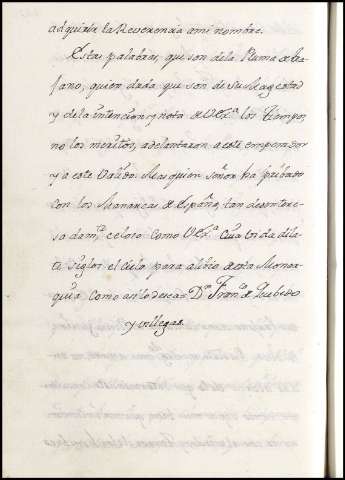 adquirir la Reverencia a mi nombre.
Estas palabras, que son de la Pluma de
fano, quien duda que son de Su Magestad
y de la intencion, y nota de V.Ex.ª los tiempos,
no los meritos, adelantaron a este emperador
y a este Valido. Mas quien señor ha pribado
con los Monarcas de España, tan desintere-
sadam.te celoso como V.Ex.ª Cua vida dila-
te siglos el cielo para alibio de esta Monar-
quia como asi lo deseas D.n Fran.co de Quebedo
y villegas.